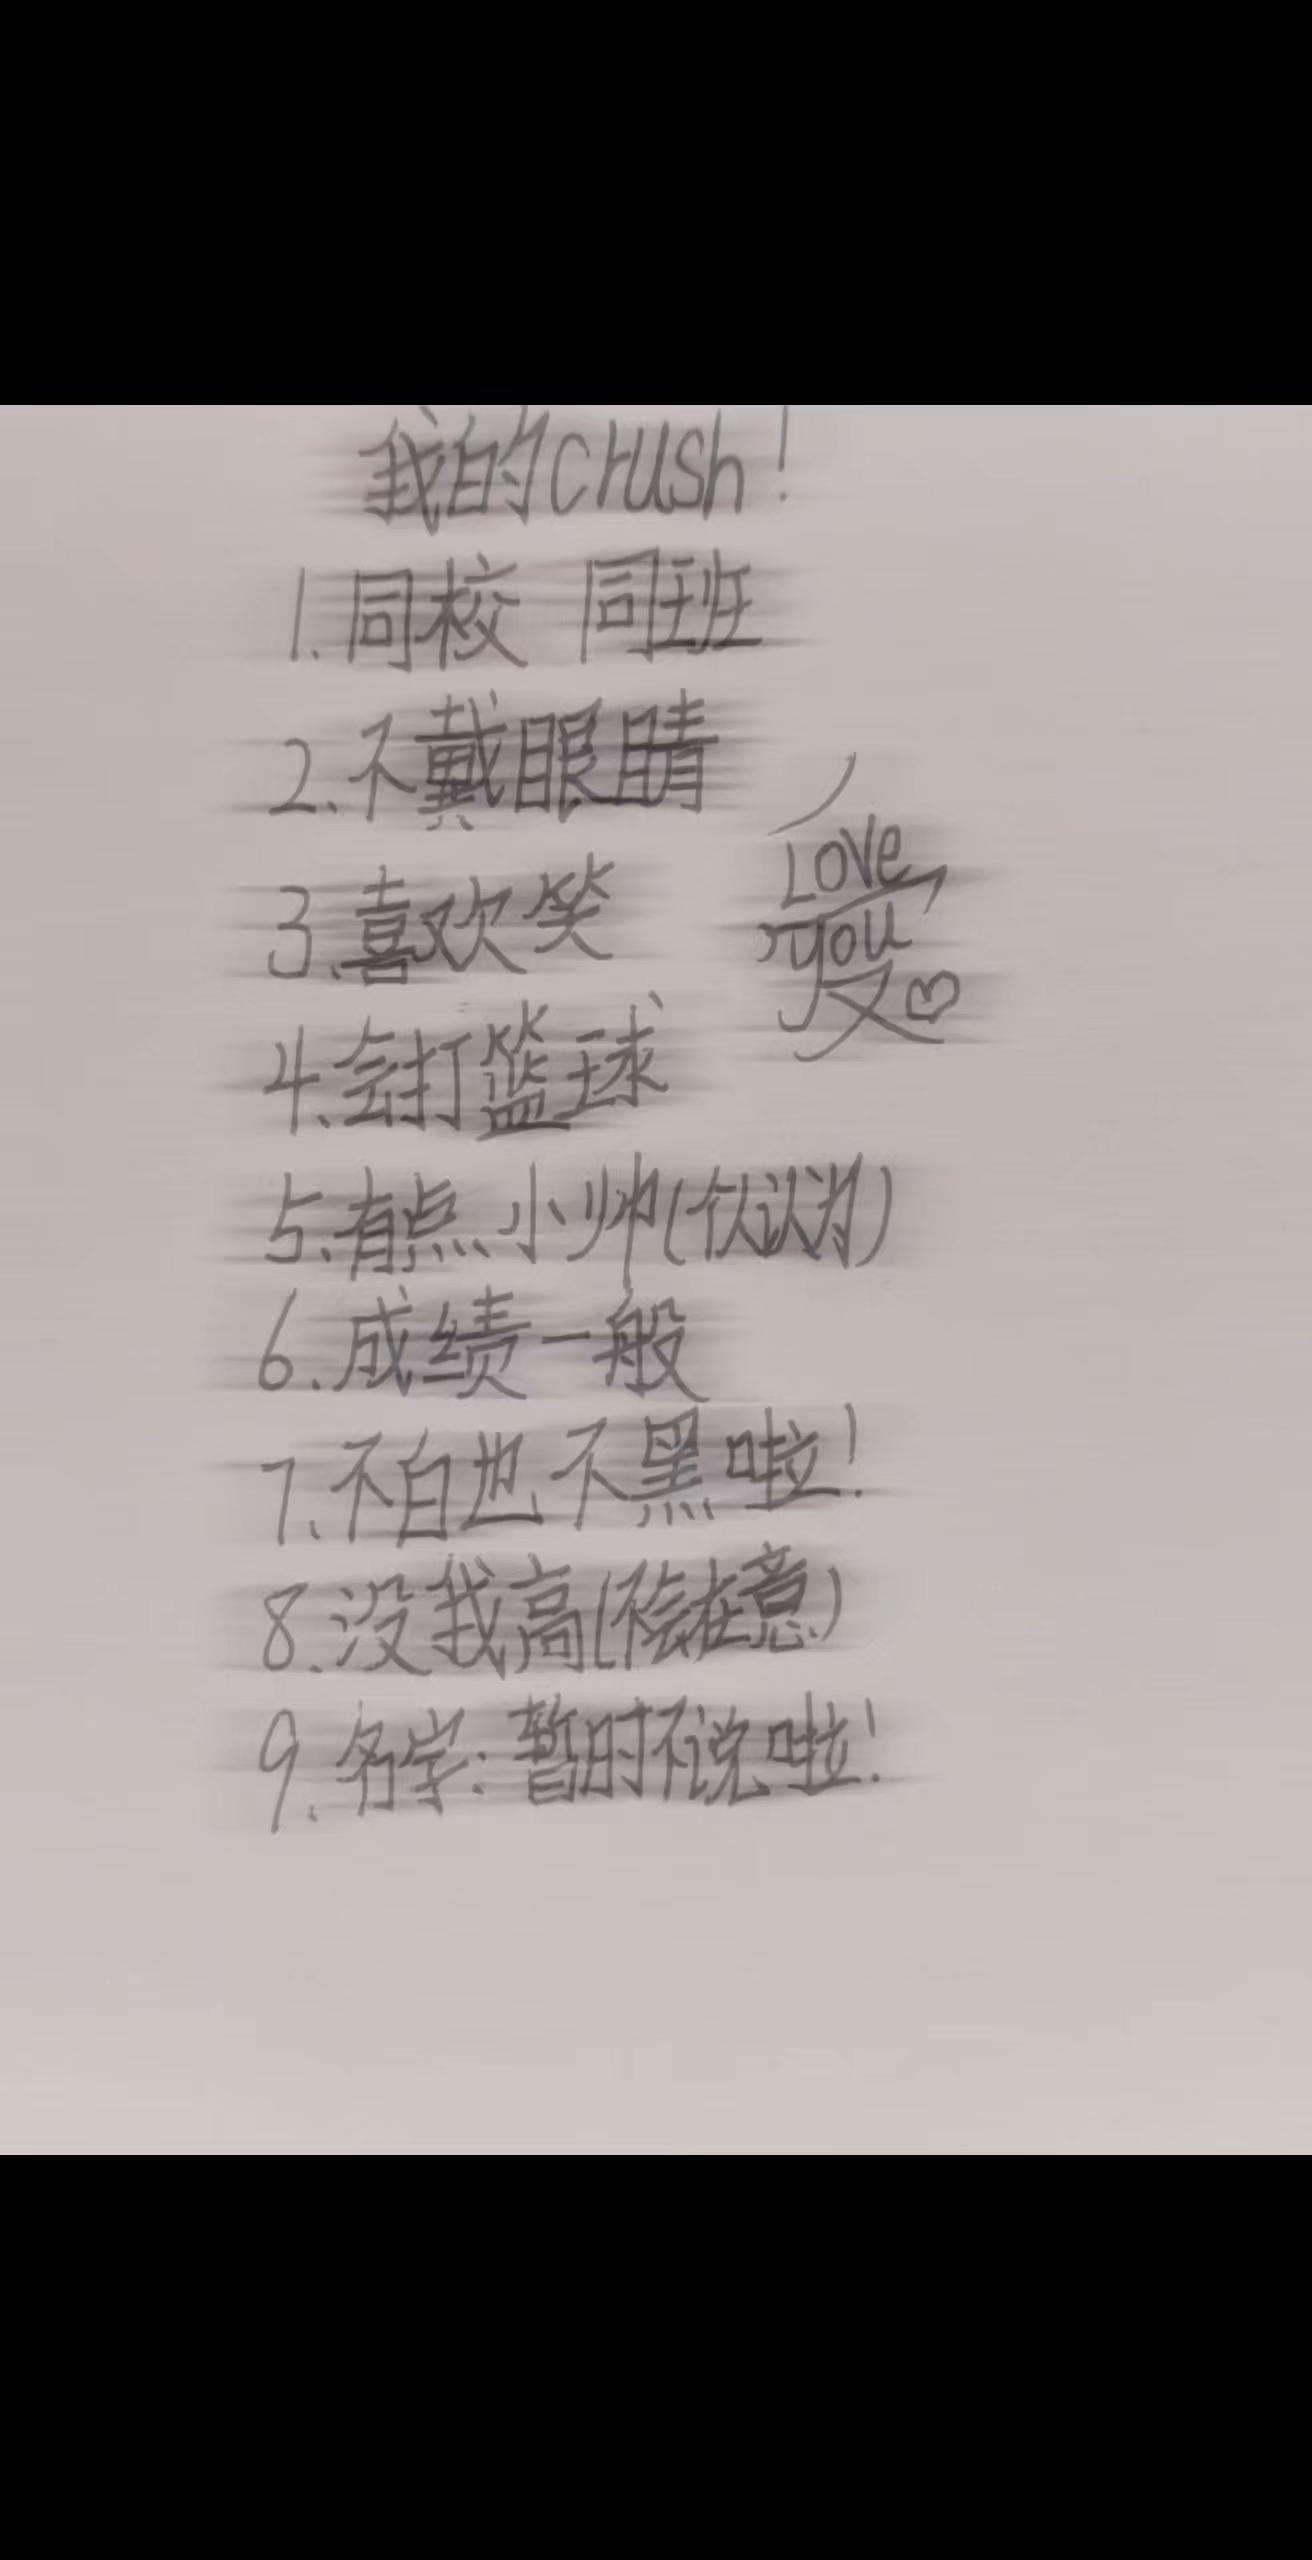 我的crush!
1.同校 同班
2.不戴眼睛
3.喜欢笑
Love
you
4.会打篮球
5.有点小帅(个人认为)
6.成绩一般
7.不白也不黑啦!
8.没我高(不会在意)
9.名字:暂时不说啦!